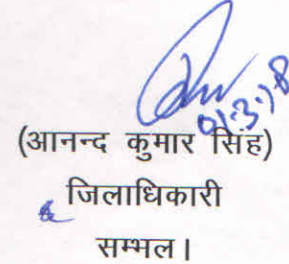 01.3.18
(आनन्द कुमार सिंह)
जिलाधिकारी
सम्भल।